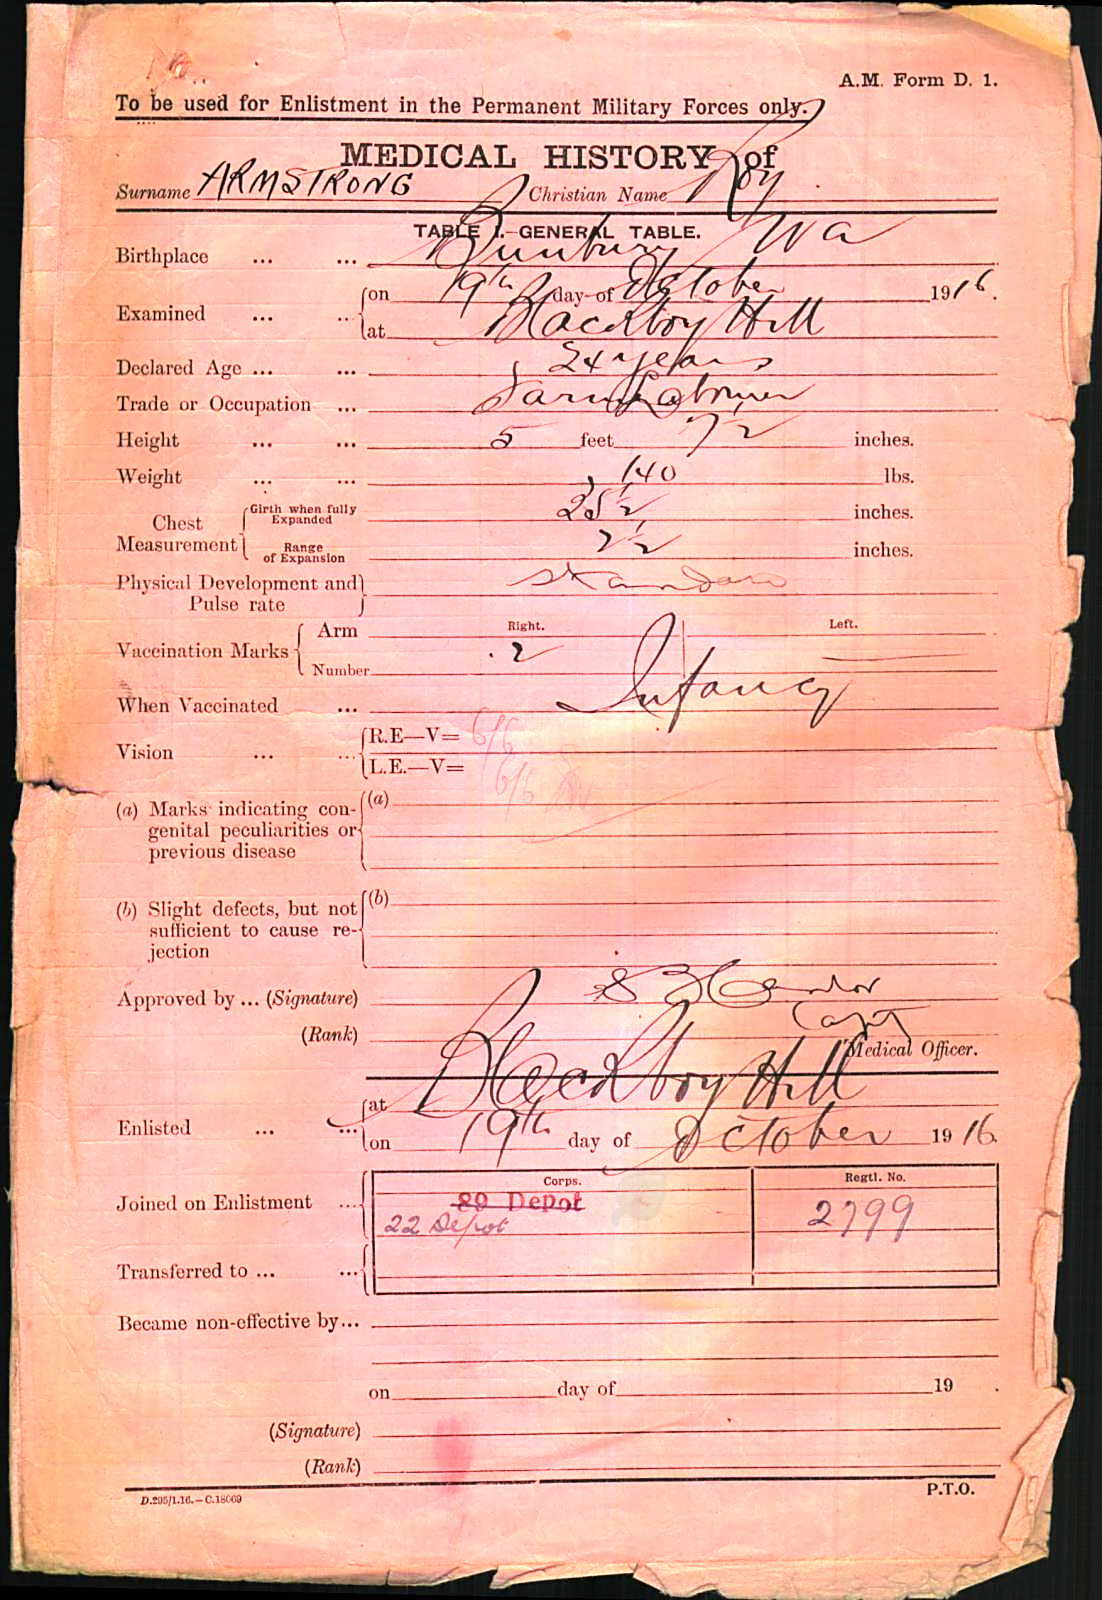 A.M. Form D. 1.
To be used for Enlistment in the Permanent Military Forces only.
MEDICAL HISTORY of
Surname ARMSTRONG Christian Name Roy
TABLE I.—GENERAL TABLE.
Birthplace ... ... Bunbury WA
Examined ... ... on 19th day of October 1916.
at Blackboy Hill
Declared Age ... ... 24 years
Trade or Occupation ... Farm Labourer
Height ... ... 5 feet 7 1/2 inches.
Weight ... ... 140 lbs.
Chest Measurement Girth when fully Expanded 35 1/2 inches.
Range of Expansion 2 1/2 inches.
Physical Development and Pulse rate standard
Vaccination Marks Arm Right. Left.
Number 2 —
When Vaccinated ... Infancy
Vision ... ... R.E—V= 6/6
L.E.—V= 6/6
(a) Marks indicating con- (a)
genital peculiarities or
previous disease
(b) Slight defects, but not (b)
sufficient to cause re-
jection
Approved by ... (Signature)
(Rank) Capt
Medical Officer.
Enlisted ... ... at Blackboy Hill
on 19th day of October 1916.
Corps. Regtl. No.
Joined on Enlistment ... 89 Depot 2799
22 Depot
Transferred to ... ...
Became non-effective by...
on day of 19 .
(Signature)
(Rank)
D.295/1.16.—C.18069 P.T.O.